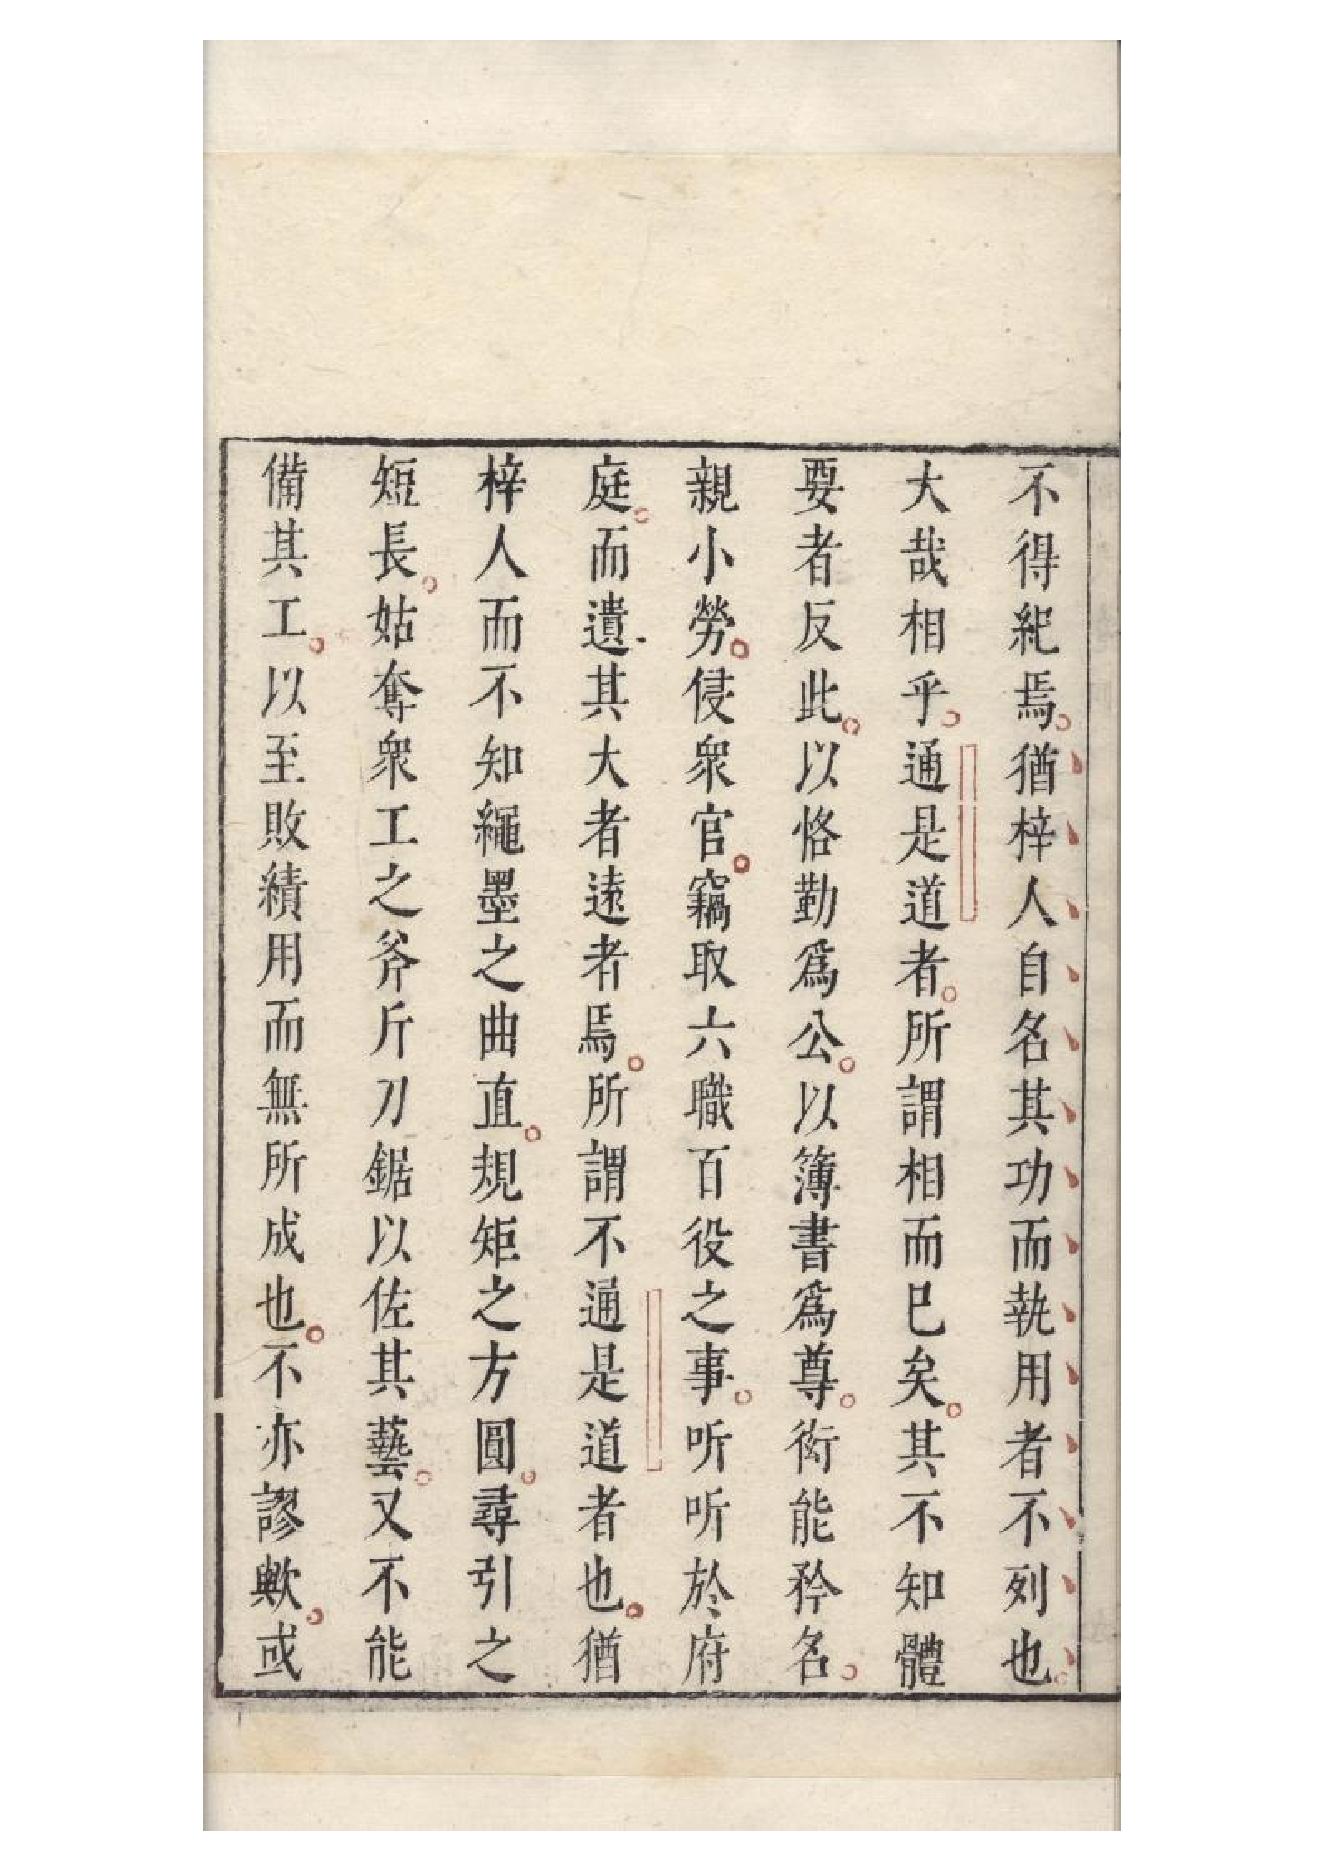 不得紀焉。猶梓人自名其功而執用者不列也。
大哉相乎。通是道者。所謂相而已矣。其不知體
要者反此。以恪勤爲公。以簿書爲尊。衒能矜名。
親小勞。侵衆官。竊取六職百役之事。听听於府
庭。而遺其大者遠者焉。所謂不通是道者也。猶
梓人而不知繩墨之曲直。規矩之方圓。尋引之
短長。姑奪衆工之斧斤刀鋸以佐其藝。又不能
備其工。以至敗績用而無所成也。不亦謬歟。或